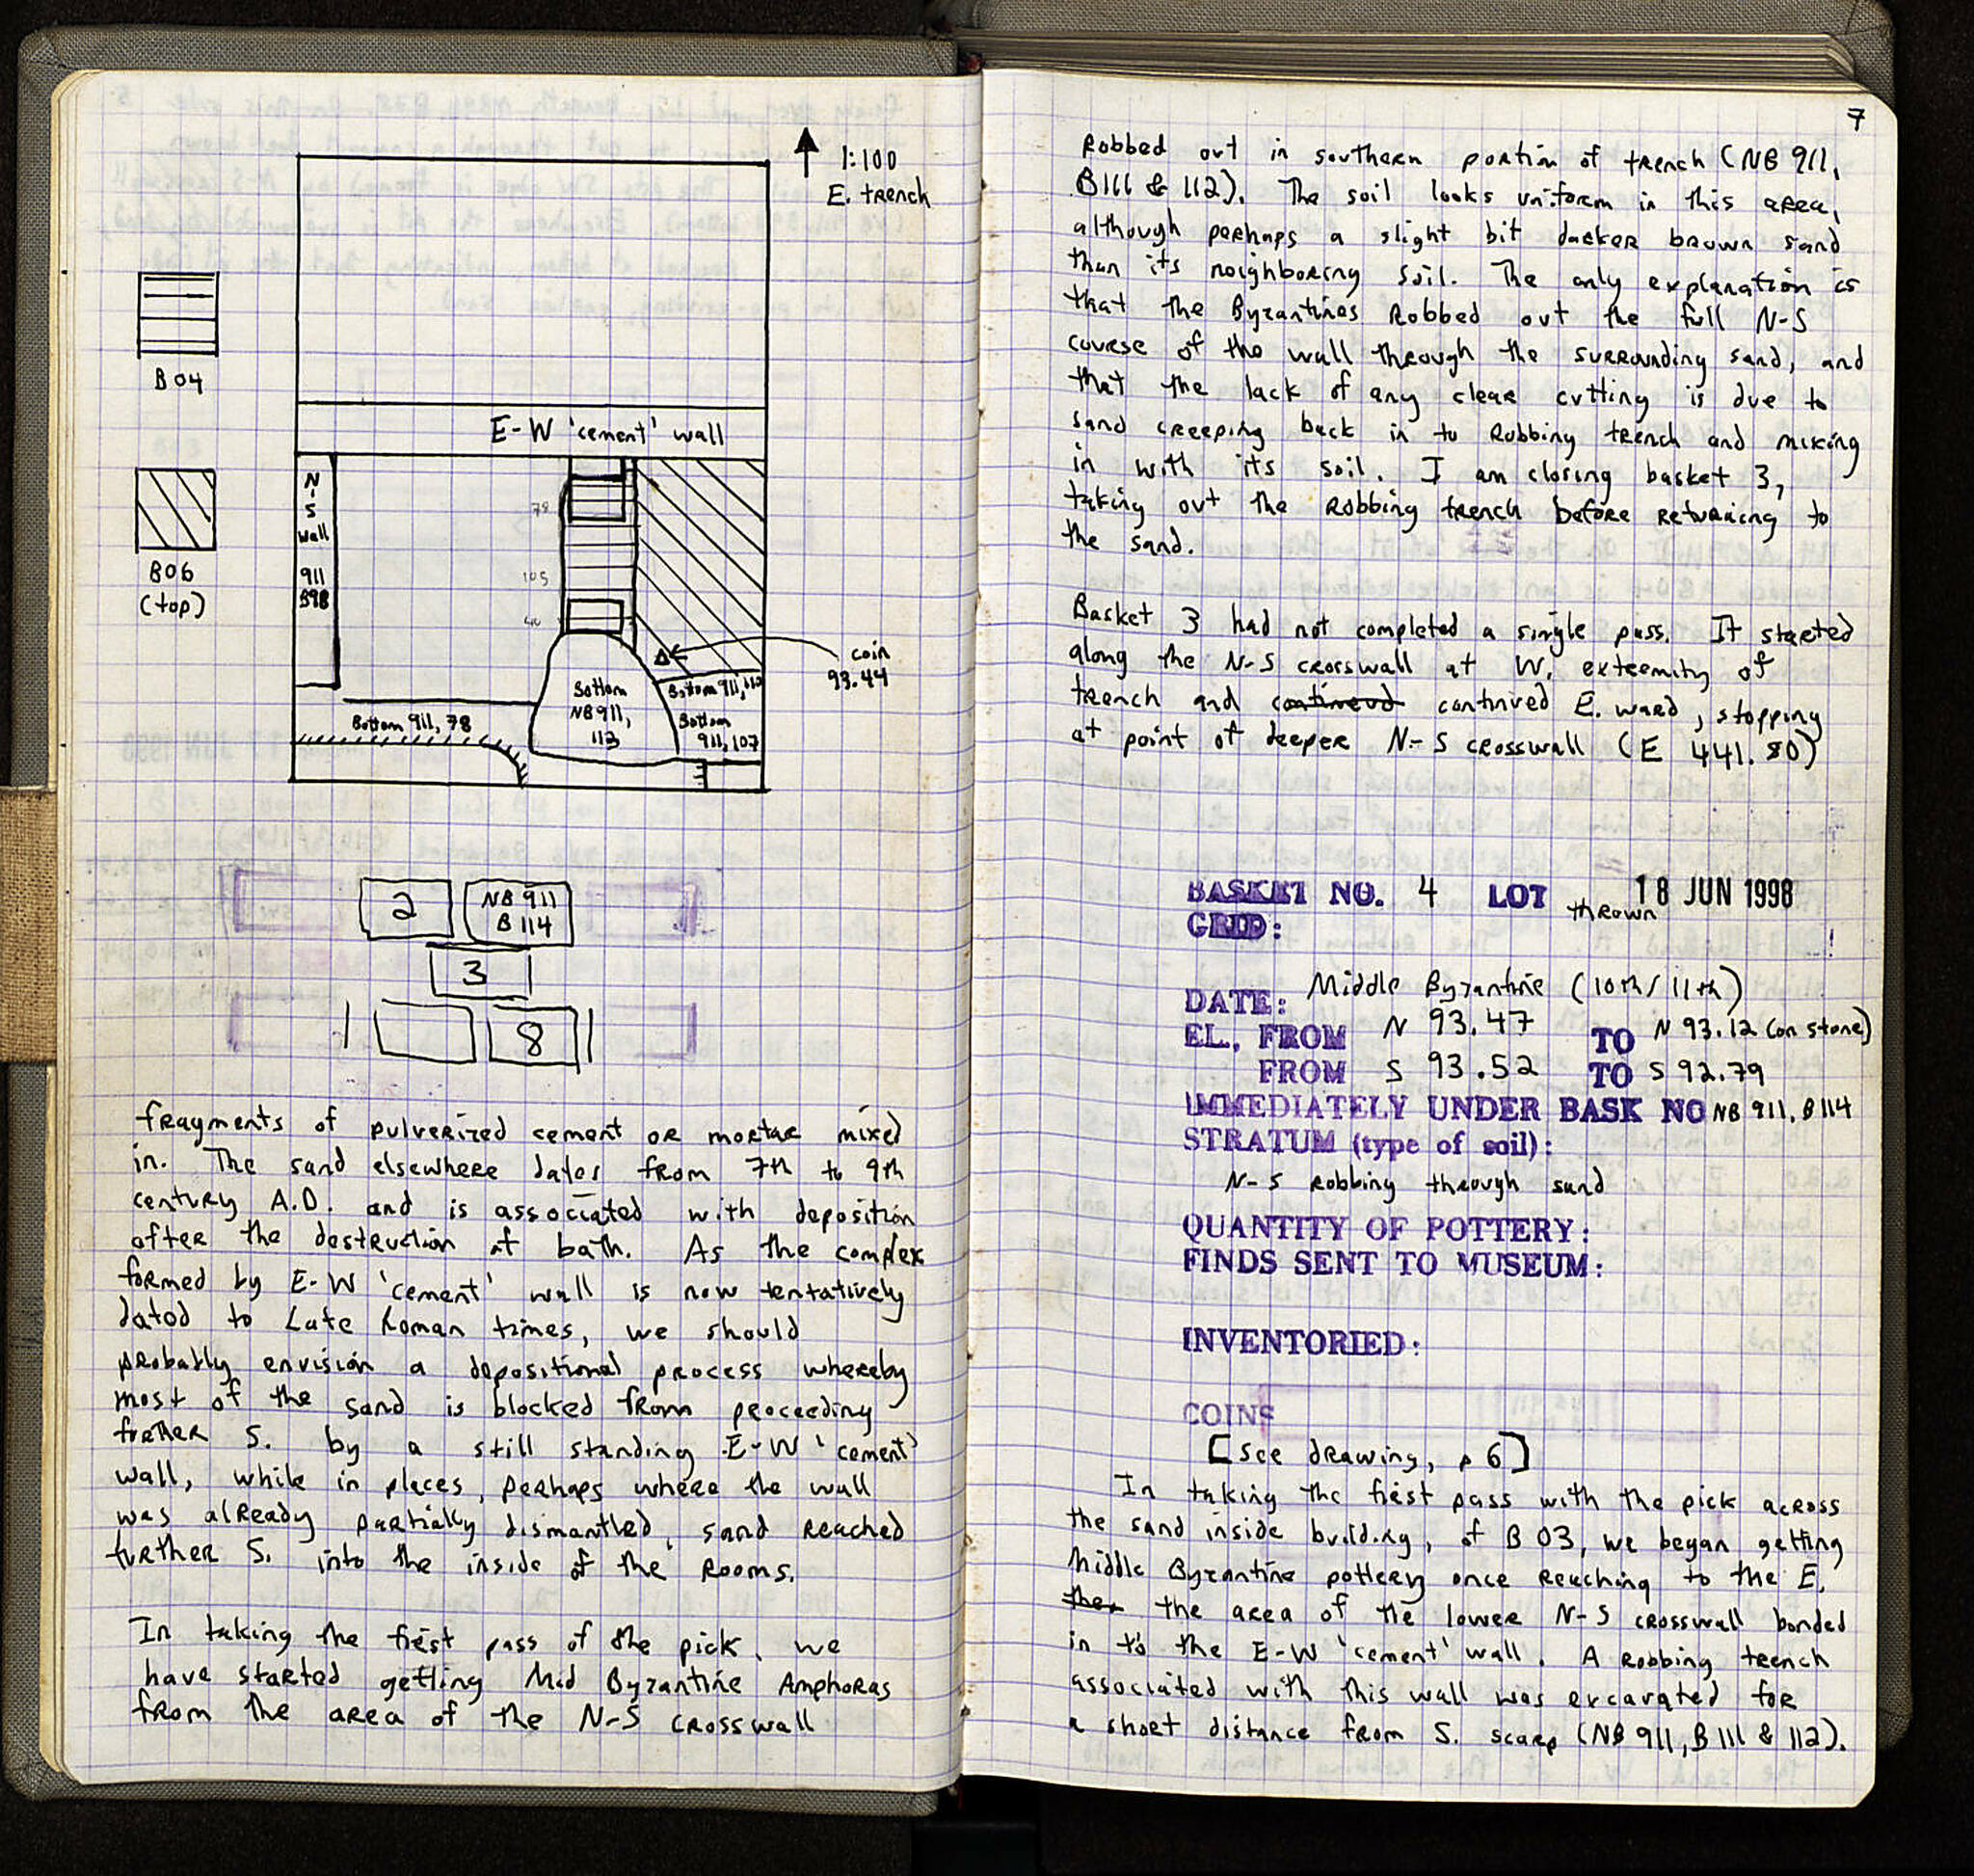 1:100
E. trench
B 04
E-W 'cement' wall
N
-
S
wall
911
B98
B06
(top)
79
105
coin
93.44
Bottom
NB 911,
113
Bottom 911, 112
Bottom
911, 107
Bottom 911, 78
2
NB 911
B 114
3
8
fragments of pulverized cement or mortar mixed
in. The sand elsewhere dates from 7th to 9th
century A.D. and is associated with deposition
after the destruction of bath. As the complex
formed by E-W 'cement' wall is now tentatively
dated to Late Roman times, we should
probably envision a depositional process whereby
most of the sand is blocked from proceeding
further S. by a still standing E-W 'cement'
wall, while in places, perhaps where the wall
was already partially dismantled, sand reached
further S. into the inside of the rooms.
In taking the first pass of the pick, we
have started getting Mid Byzantine Amphoras
from the area of the N-S crosswall
7
Robbed out in southern portion of trench (NB 911,
B111 & 112). The soil looks uniform in this area,
although perhaps a slight bit darker brown sand
than its neighboring soil. The only explanation is
that the Byzantines Robbed out the full N-S
course of the wall through the surrounding sand, and
that the lack of any clear cutting is due to
sand creeping back in to Robbing trench and mixing
in with its soil. I am closing basket 3,
taking out the Robbing trench before returning to
the sand.
Basket 3 had not completed a single pass. It started
along the N-S crosswall at W. extremity of
trench and continued continued E. ward, stopping
at point of deeper N-S crosswall (E 441.80)
BASKET NO. 4 LOT thrown 18 JUN 1998
GRID:
DATE: Middle Byzantine (10th/11th)
EL., FROM N 93.47 TO N 93.12 (on stone)
FROM S 93.52 TO S 92.79
IMMEDIATELY UNDER BASK NO NB 911, B 114
STRATUM (type of soil):
N-S Robbing through sand
QUANTITY OF POTTERY:
FINDS SENT TO MUSEUM:
INVENTORIED:
COINS
[see drawing, p 6]
In taking the first pass with the pick across
the sand inside building, of B 03, we began getting
Middle Byzantine pottery once reaching to the E.
the area of the lower N-S crosswall bonded
in to the E-W 'cement' wall. A Robbing trench
associated with this wall was excavated for
a short distance from S. scarp (NB 911, B 111 & 112).